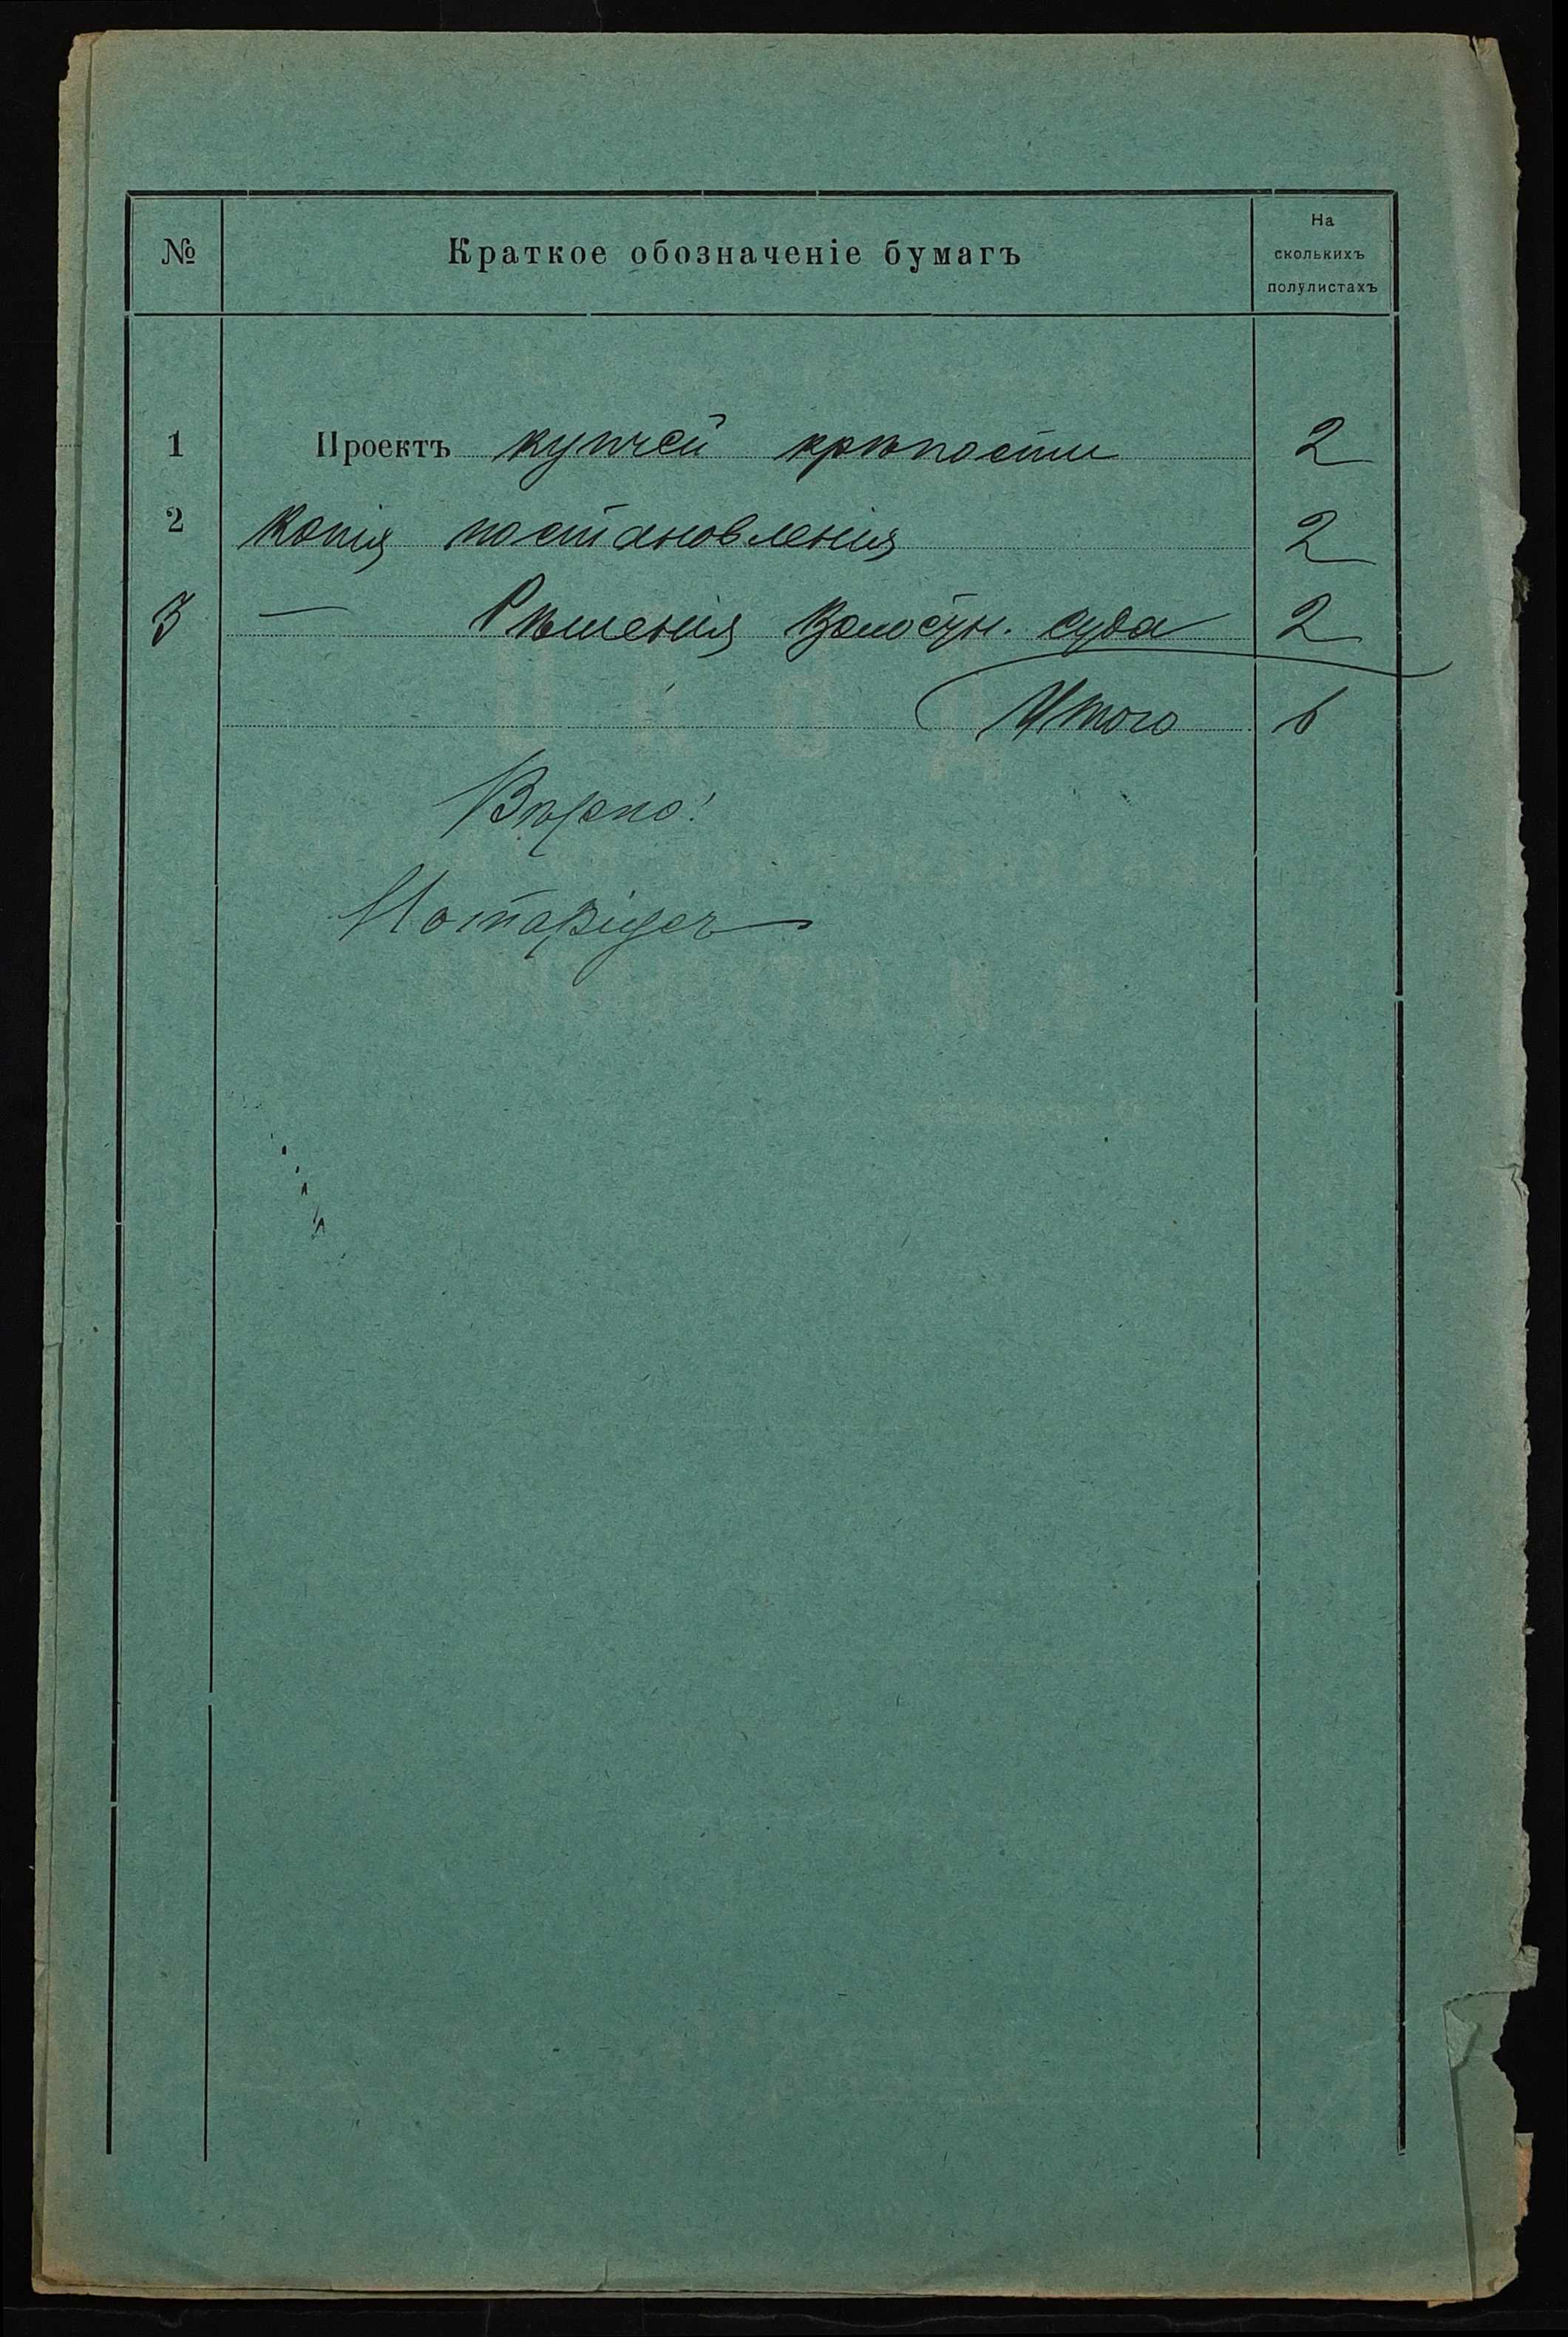 № Краткое обозначеніе бумагъ На сколькихъ полулистахъ
1 Проектъ купчей крѣпости 2
2 Копія постановленія 2
3 — Рѣшенія Волостн. суда 2
Итого 6
Вѣрно!
Нотаріусъ